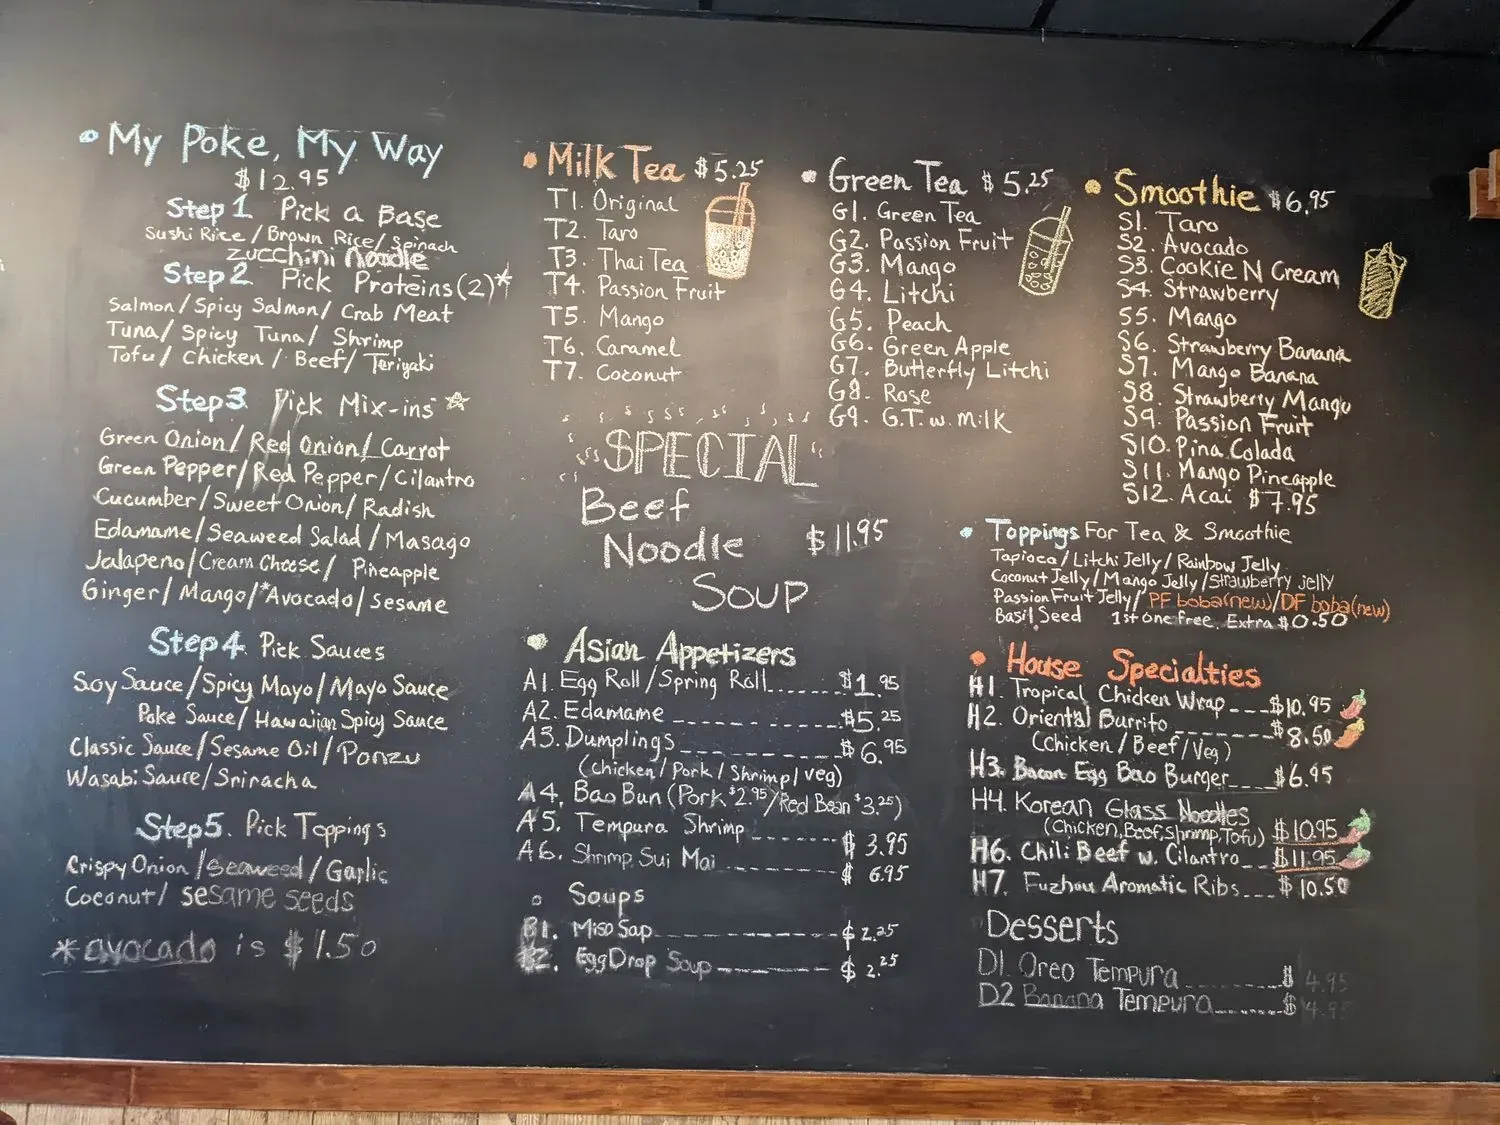 • My Poke, My Way
$12.95
Step 1 Pick a Base
Sushi Rice / Brown Rice / Spinach
Zucchini Noodle
Step 2 Pick Proteins (2)*
Salmon / Spicy Salmon / Crab Meat
Tuna / Spicy Tuna / Shrimp
Tofu / Chicken / Beef / Teriyaki
Step 3 Pick Mix-ins ☆
Green Onion / Red Onion / Carrot
Green Pepper / Red Pepper / Cilantro
Cucumber / Sweet Onion / Radish
Edamame / Seaweed Salad / Masago
Jalapeno / Cream Cheese / Pineapple
Ginger / Mango / *Avocado / Sesame
Step 4 Pick Sauces
Soy Sauce / Spicy Mayo / Mayo Sauce
Poke Sauce / Hawaiian Spicy Sauce
Classic Sauce / Sesame Oil / Ponzu
Wasabi Sauce / Sriracha
Step 5. Pick Toppings
Crispy Onion / Seaweed / Garlic
Coconut / Sesame seeds
*avocado is $1.50
• Milk Tea $5.25
T1. Original
T2. Taro
T3. Thai Tea
T4. Passion Fruit
T5. Mango
T6. Caramel
T7. Coconut
• Green Tea $5.25
G1. Green Tea
G2. Passion Fruit
G3. Mango
G4. Litchi
G5. Peach
G6. Green Apple
G7. Butterfly Litchi
G8. Rose
G9. G.T. w. Milk
• Smoothie $6.95
S1. Taro
S2. Avocado
S3. Cookie N Cream
S4. Strawberry
S5. Mango
S6. Strawberry Banana
S7. Mango Banana
S8. Strawberry Mango
S9. Passion Fruit
S10. Pina Colada
S11. Mango Pineapple
S12. Acai $7.95
SPECIAL
Beef
Noodle $11.95
Soup
• Toppings For Tea & Smoothie
Tapioca / Litchi Jelly / Rainbow Jelly
Coconut Jelly / Mango Jelly / Strawberry Jelly
Passion Fruit Jelly / PF boba (new) / DF boba (new)
Basil Seed 1st one Free, Extra $0.50
• Asian Appetizers
A1. Egg Roll / Spring Roll $1.95
A2. Edamame $5.25
A3. Dumplings $6.95
(Chicken / Pork / Shrimp / Veg)
A4. Bao Bun (Pork $2.95 / Red Bean $3.25)
A5. Tempura Shrimp $3.95
A6. Shrimp Sui Mai $6.95
Soups
B1. Miso Sap $2.25
B2. Egg Drop Soup $2.25
• House Specialties
H1. Tropical Chicken Wrap $10.95
H2. Oriental Burrito $8.50
(Chicken / Beef / Veg)
H3. Bacon Egg Bao Burger $6.95
H4. Korean Glass Noodles
(Chicken, Beef, Shrimp, Tofu) $10.95
H6. Chili Beef w. Cilantro $11.95
H7. Fuzhou Aromatic Ribs $10.50
Desserts
D1 Oreo Tempura $4.95
D2 Banana Tempura $4.95